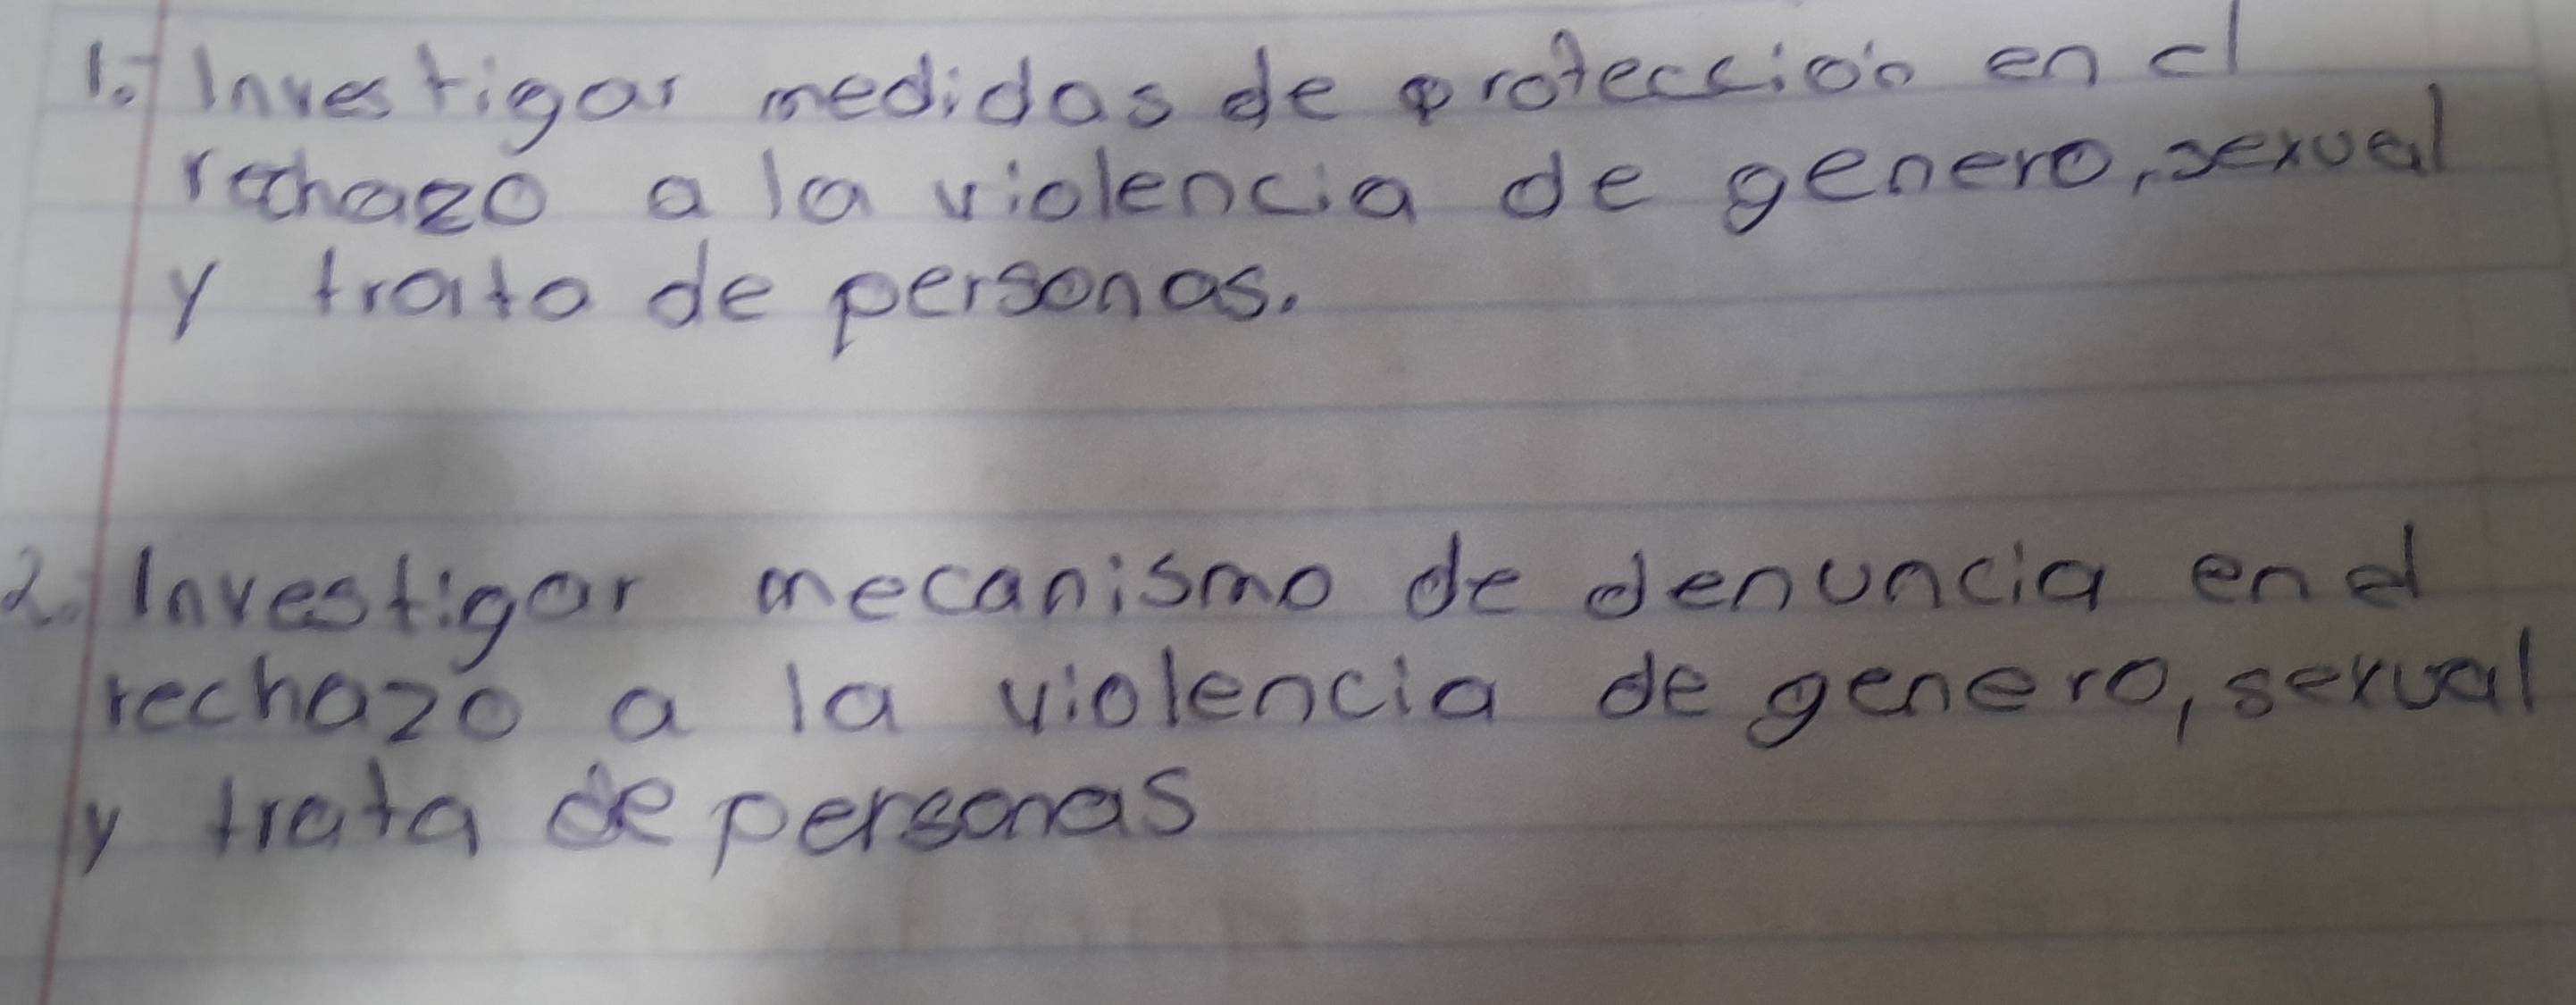 1. Investigar medidas de protección en el
rechazo a la violencia de genero, sexual
y trato de personas.
2. Investigar mecanismo de denuncia en el
rechazo a la violencia de genero, sexual
y trata de personas